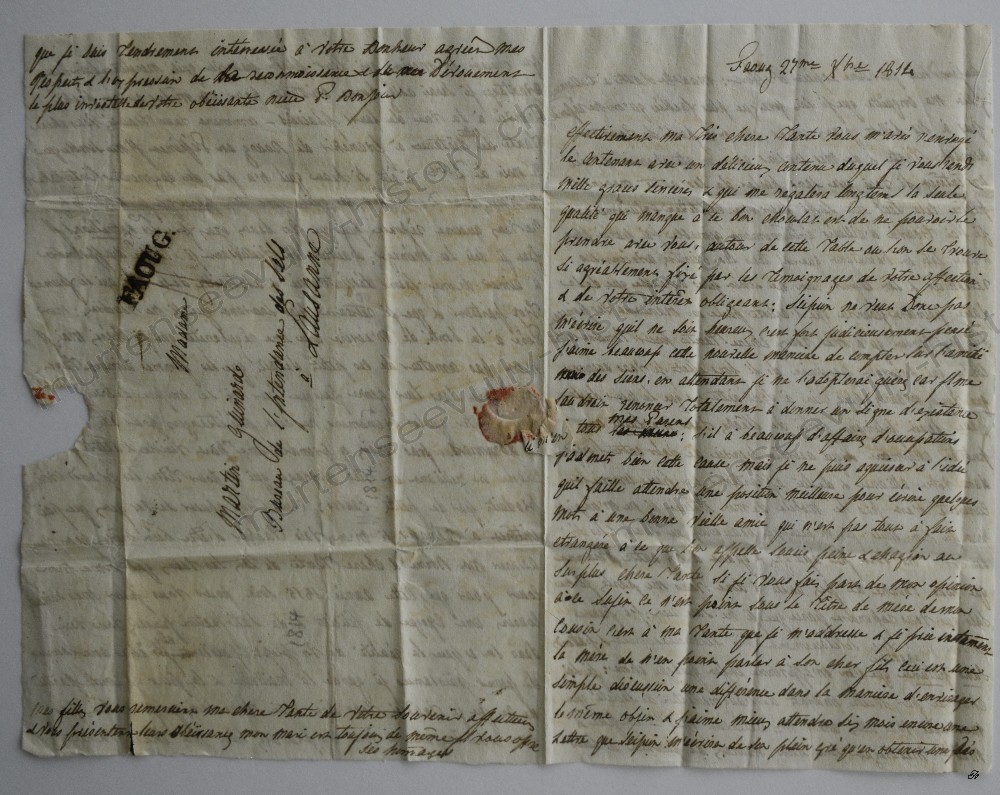 Faoug 27me Xbre 1814
effectivement ma très chere Tante vous m'avés renvoyé
le contenant avec un delicieux contenu duquel je vous rend
mille graces sinceres & qui me régalera longtems la seule
qualité qui manque à ce bon chocolat est de ne pouvoir le
prendre avec vous, autour de cette Table ou l'on se trouve
si agréablement fixé par les Temoignages de votre affection
& de votre intérêt obligeant; ne veut Donc pas
m'écrire qu'il ne soit heureux c'est fort judicieusement pensé
j'aime beaucoup cette nouvelle maniere de compter sur l'amitié
des siens, en attendant je ne l'adopterai guères car il me
faudroit renoncer Totalement à donner un signe d'existence
à tous mes Parens; s'il à beaucoup d'affaires d'occupations
j'admets bien cette cause mais je ne puis aquiescer à l'idée
qu'il faille attendre une position meilleure pour écrire quelques
mots à une bonne vieille amie qui n'est pas tout à fait
etrangère à ce que l'on appelle soucis peine & chagrin au
surplus chere Tante si je vous fais part de mon opinion
à ce sujet ce n'est point sous le Titre de mère de mon
Cousin c'est à ma Tante que je m'addresse & je prie instamment
la mère de n'en point parler à son cher fils ceci est une
simple discussion une différence dans la maniere d'envisager
le même objet & j'aime mieux attendre six mois encore une
Lettre que m'écrira de son plein gré qu'en obtenir une dès
que je suis Tendrement intéressée à votre Bonheur agréés mes
respects & l'expression de ma reconnoissance & du Dévouement
le plus inviolable de votre obéissante nièce P. Bonjour
FAOUG.
Madame
Martin Guirard
Bureau de l'Intendance des Sels
à Lausanne
1814
mes filles vous remercient ma chere Tante de votre souvenir affectueux
& vous présentent leurs obéissances mon mari est toujours de même il vous offre
ses homages